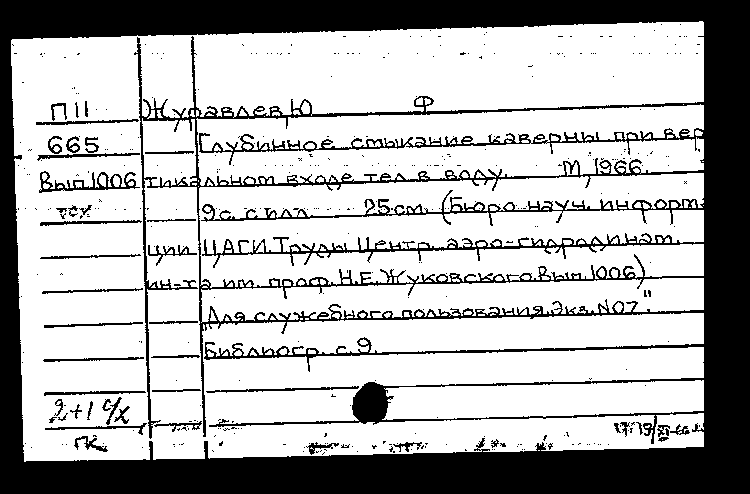 П11 Журавлев, Ю Ф
665 Глубинное смыкание каверны при вер
Вып.1006 тикальном входе тел в воду. М, 1966.
9с. с илл. 25см. (Бюро науч. информа
ции ЦАГИ. Труды Центр. аэро-гидродинам.
ин-та им. проф. Н.Е.Жуковского. Вып.1006)
"Для служебного пользования. Экз. №07".
Библиогр. с.9.
2+1 ч/х
ГК